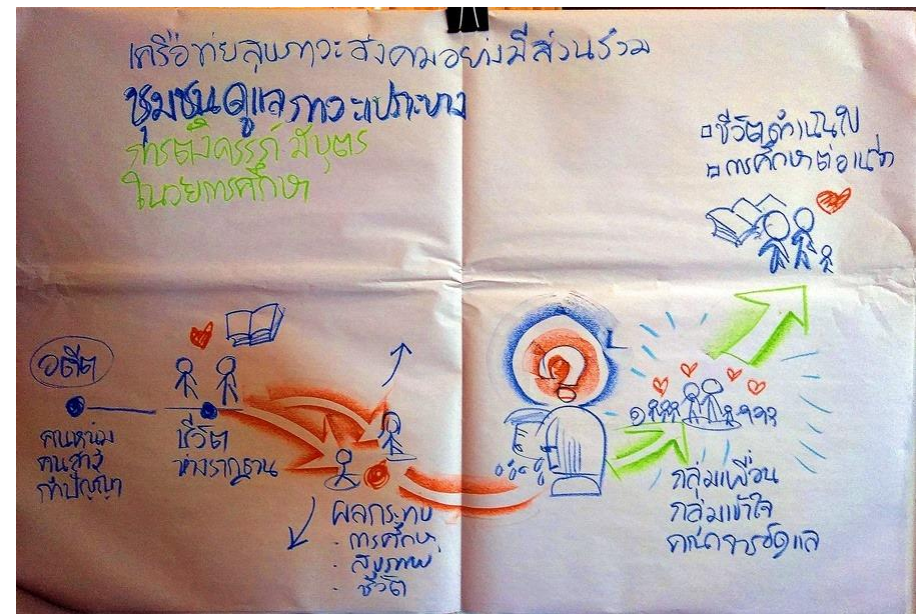 เครือข่ายสุขภาวะสังคมอย่างมีส่วนร่วม
ชุมชนดูแลภาวะเปราะบาง
การตั้งครรภ์ มีบุตร
ในวัยการศึกษา
ชีวิตดำเนินไป
การศึกษาต่อเนื่อง
อดีต
คนหนุ่ม
คนสาว
ชีวิต
ผลกระทบ
การศึกษา
สุขภาพ
ชีวิต
?
กลุ่มเพื่อน
กลุ่มเข้าใจ